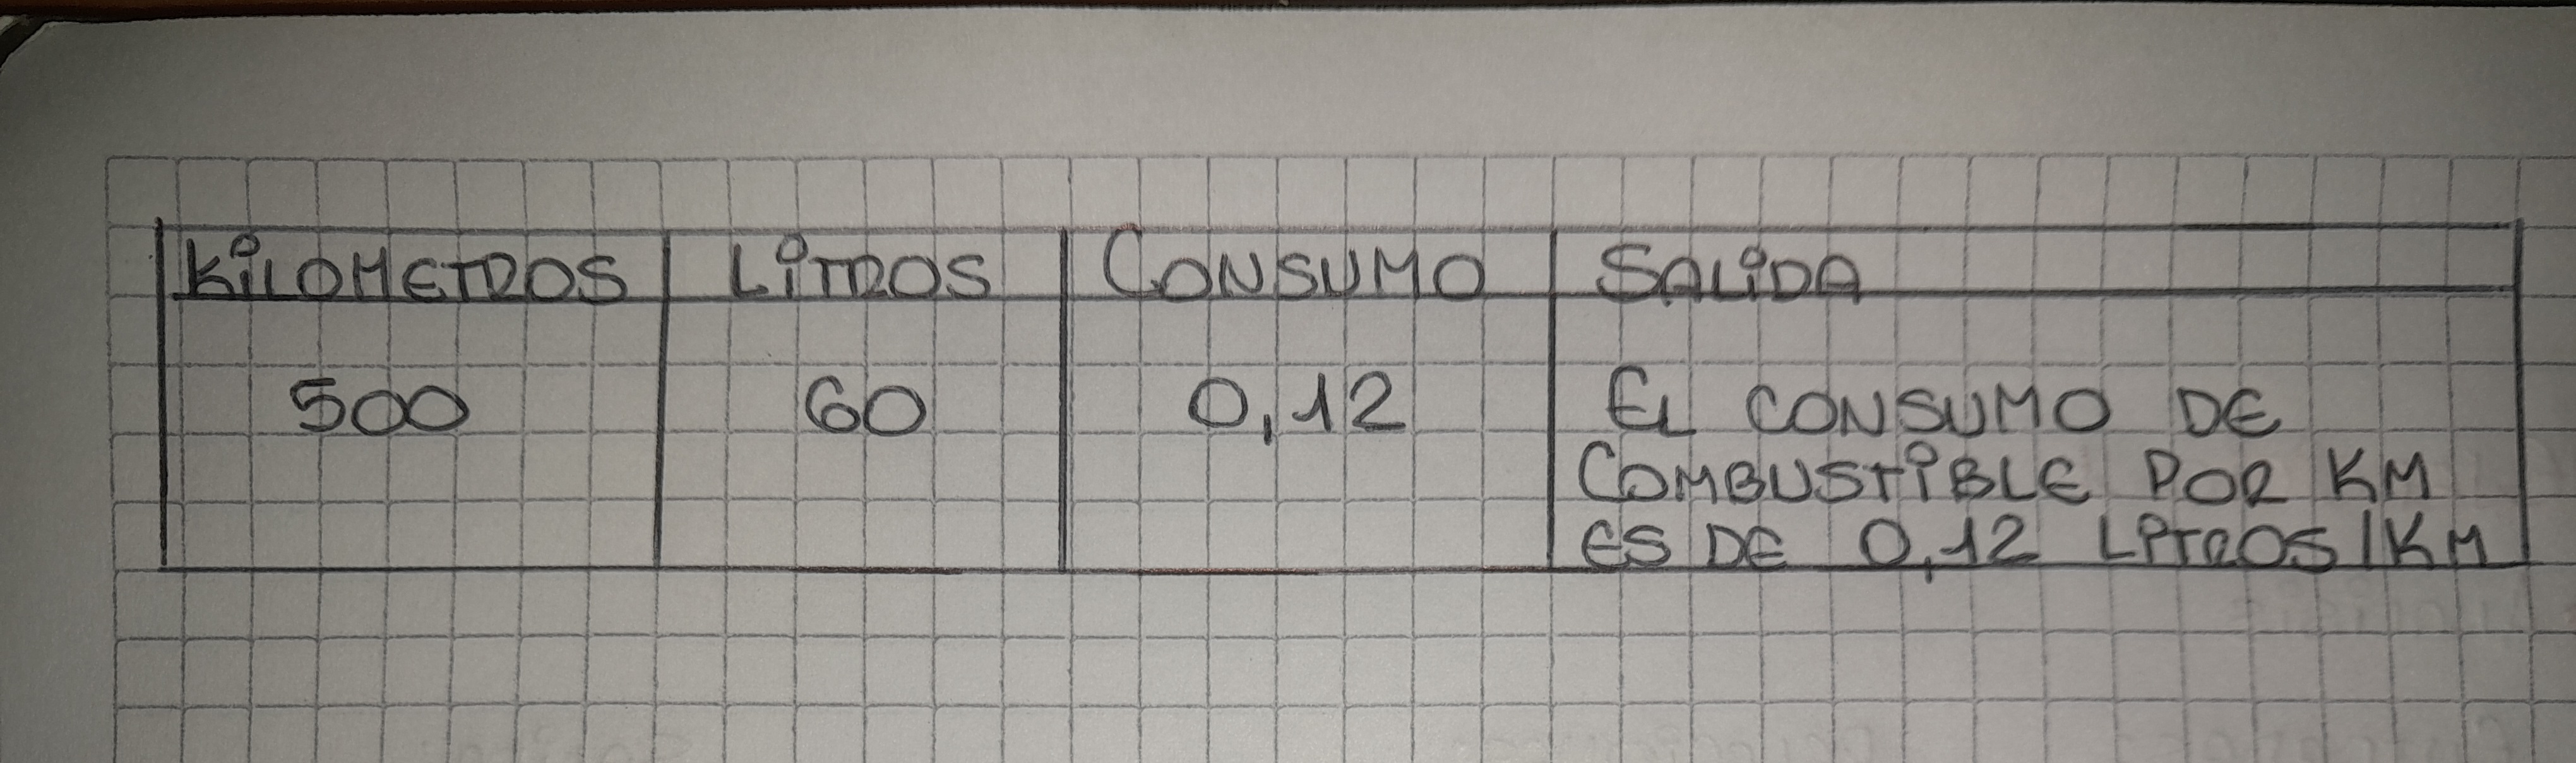 KILOMETROS LITROS CONSUMO SALIDA
500 60 0,12 EL CONSUMO DE
COMBUSTIBLE POR KM
ES DE 0,12 LITROS/KM